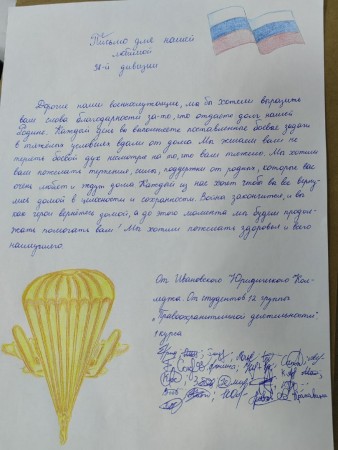 Письмо для нашей
любимой
98-й дивизии
Дорогие наши военнослужащие, мы бы хотели выразить
вам слова благодарности за то, что отдаёте долг нашей
Родине. Каждый день вы выполняете поставленные боевые задачи
в тяжёлых условиях вдали от дома. Мы желаем вам не
терять боевой дух несмотря на то, что вам тяжело. Мы хотим
вам пожелать терпение, силы, поддержки от родных, которые вас
очень любят и ждут дома. Каждый из нас хочет чтобы вы все верну-
лись домой в целости и сохранности. Война закончится, и вы
как герои вернётесь домой, а до этого момента мы будем продол-
жать помогать вам! Мы хотим пожелать здоровья и всего
наилучшего.
От Ивановского Юридического Кол-
леджа. От студентов 12 группы
"Правоохранительной деятельности"
1 курса